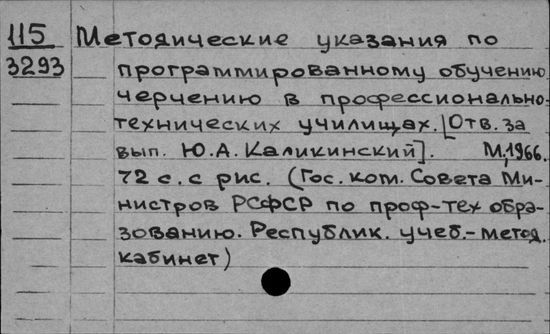 115 Методические указания по
3293 программированному обучению
черчению в профессионально-
технических училищах. [Отв. за
вып. Ю.А. Каликинский]. М, 1966.
72 с. с рис. (Гос. ком. Совета Ми-
нистров РСФСР по проф-тех обра-
зованию. Республик. учеб.-метод.
кабинет)